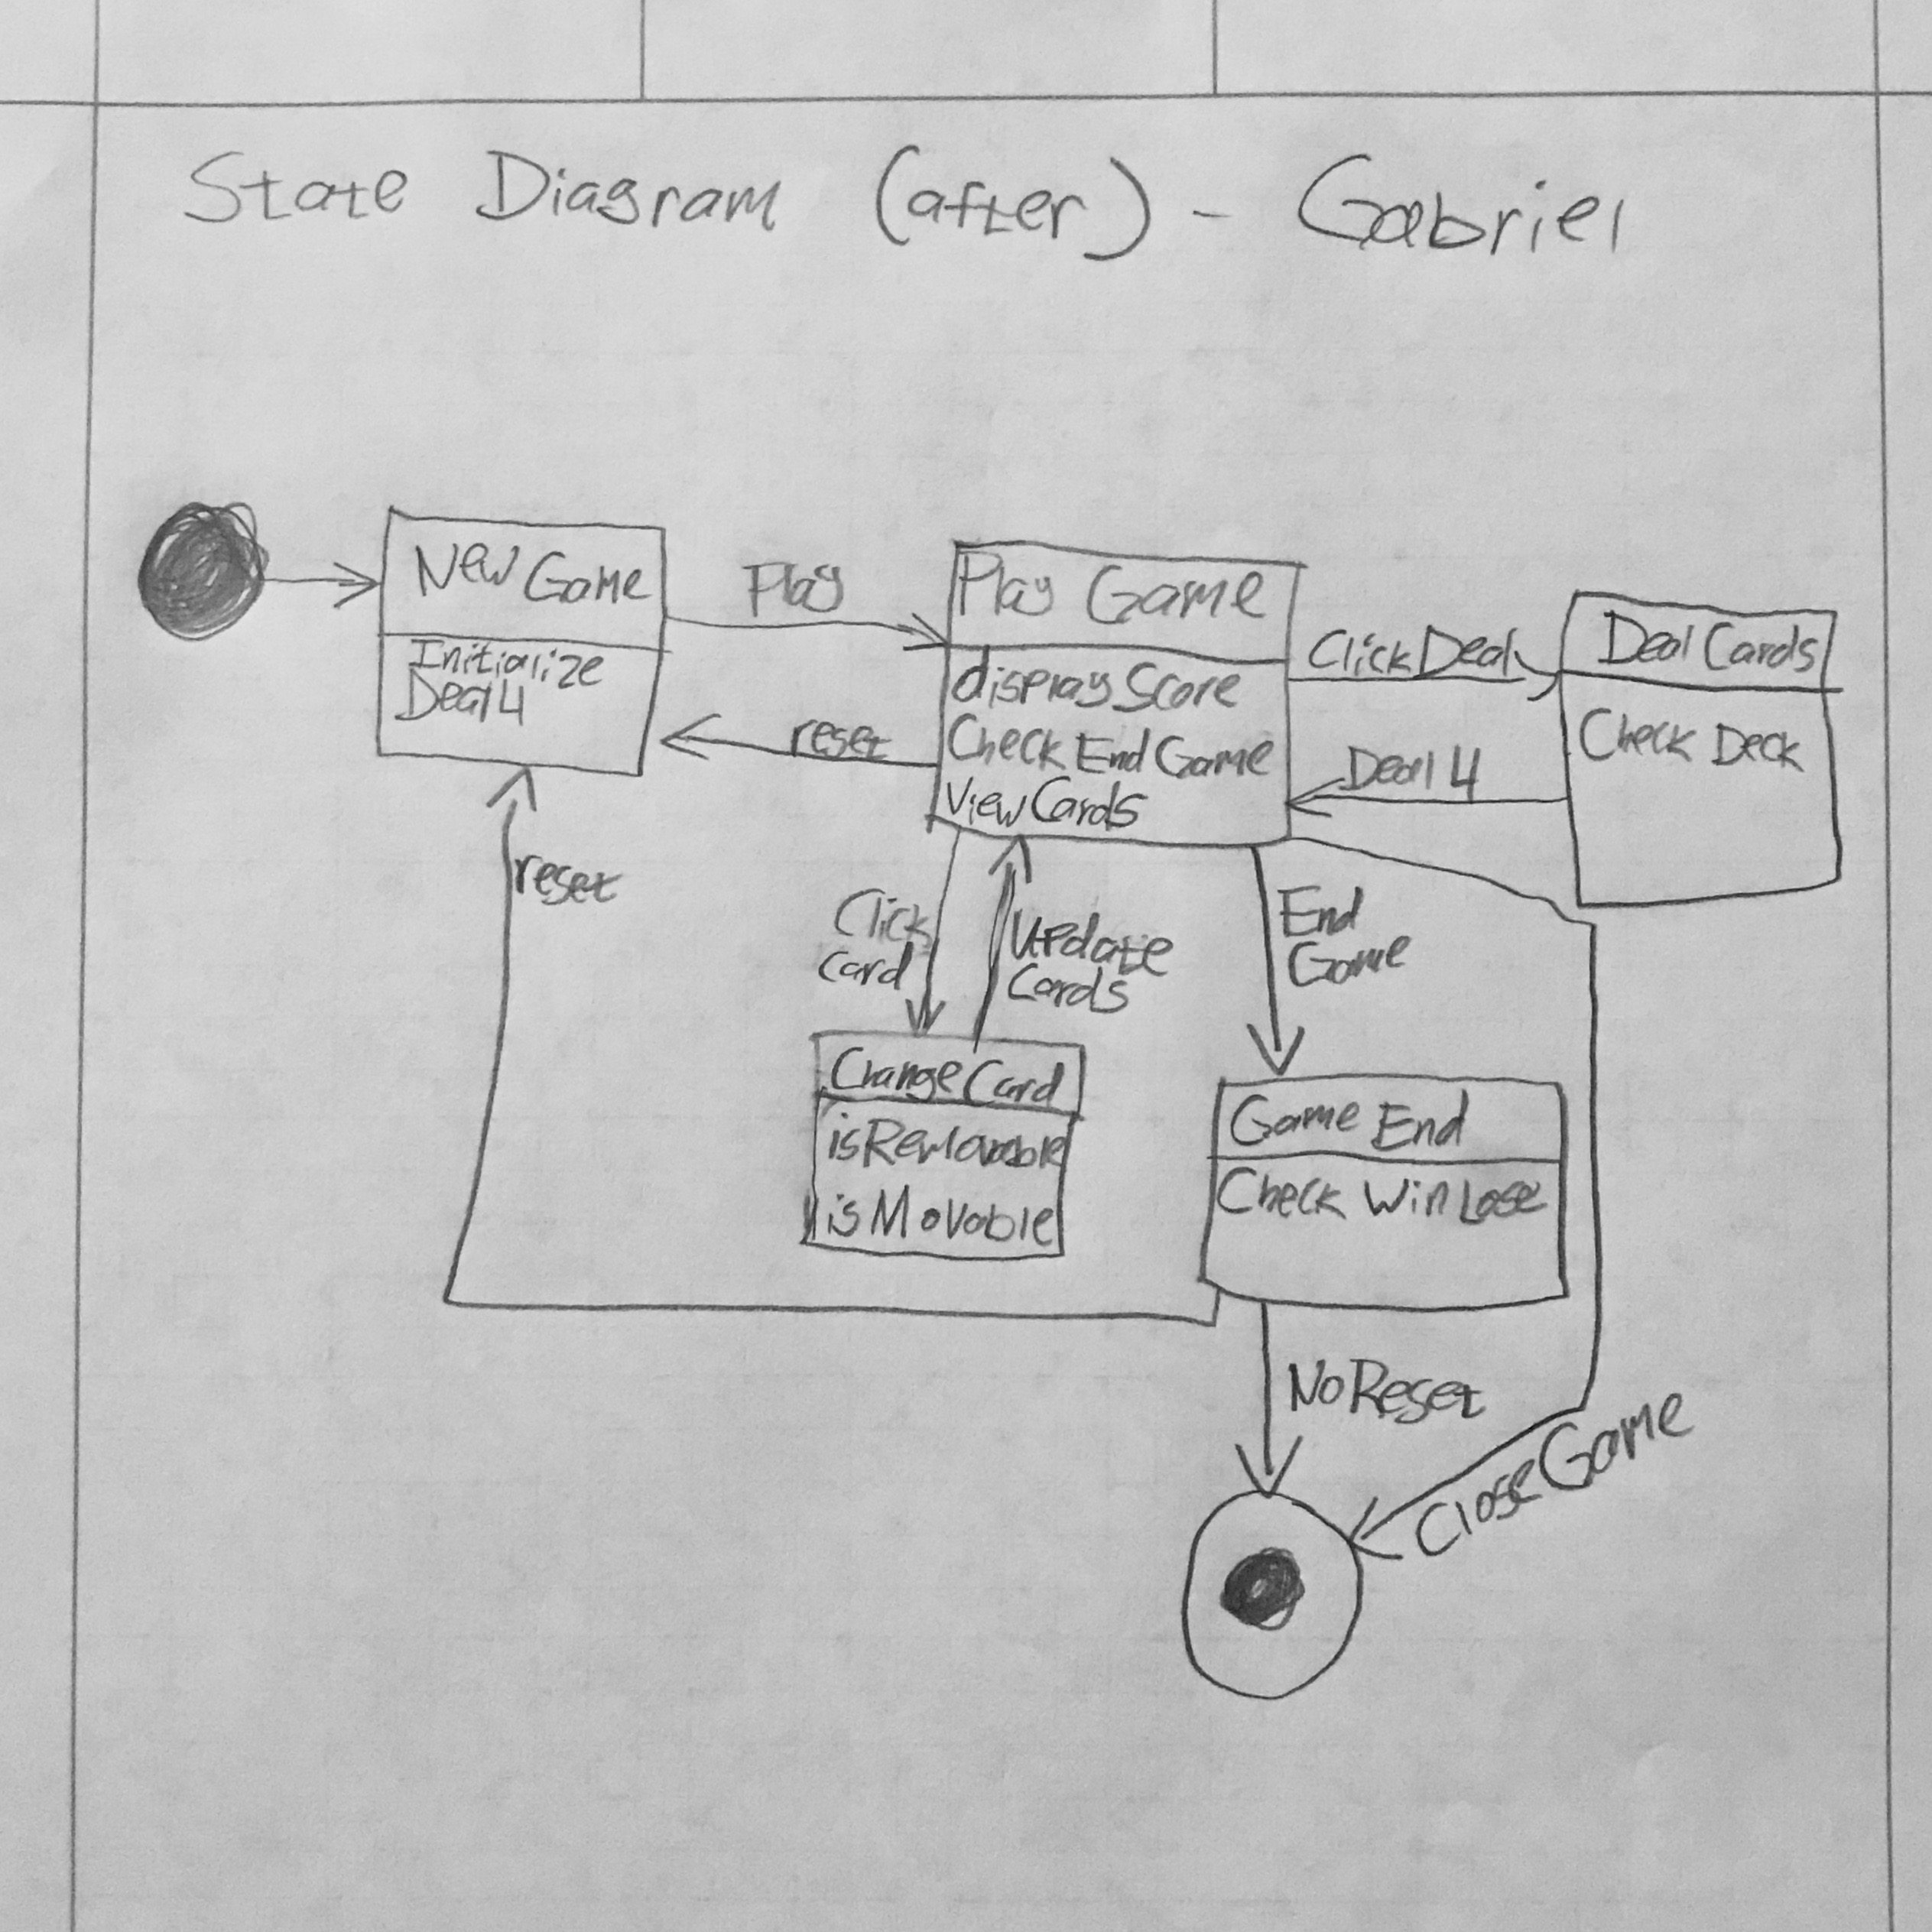 State Diagram (after) - Gabriel
New Game
Initialize
Deal 4
Play
reset
Play Game
display Score
Check End Game
View Cards
Click Deal
Deal 4
Deal Cards
Check Deck
reset
Click
Card
Update
Cards
End
Game
Change Card
isRemovable
isMovable
Game End
Check Win Lose
No Reset
Close Game